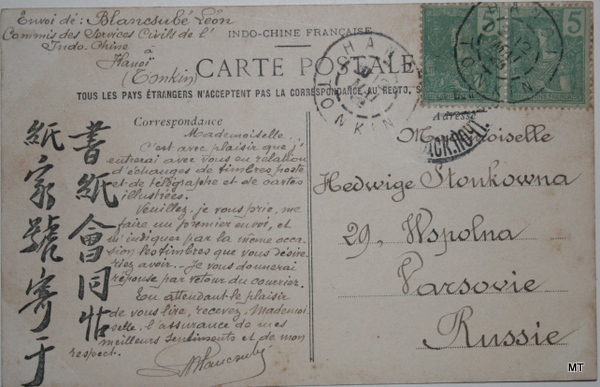 Envoi de: Blancsubé Léon
Commis des Services Civils de l'
Indo-Chine
à
Hanoï
(Tonkin)
INDO-CHINE FRANÇAISE
CARTE POSTALE
TOUS LES PAYS ÉTRANGERS N'ACCEPTENT PAS LA CORRESPONDANCE AU RECTO, S
5
5
HANOI
TONKIN
HANOI
TONKIN
Correspondance
Mademoiselle.
C'est avec plaisir que j'
entrerai avec vous en relation
d'échanges de timbres poste
et de télégraphe et de cartes
illustrées.
Veuillez, je vous prie, me
faire un premier envoi, et
m'indiquer par la même occa-
sion les timbres que vous désire-
riez avoir. Je vous donnerai
réponse par retour du courrier.
En attendant le plaisir
de vous lire, recevez, Mademoi-
selle, l'assurance de mes
meilleurs sentiments et de mon
respect.
LBlancsubé
書紙會同
紙家號寄于
Adresse
Mademoiselle
Hedwige Stonkowna
29, Wspolna
Varsovie
Russie
MT